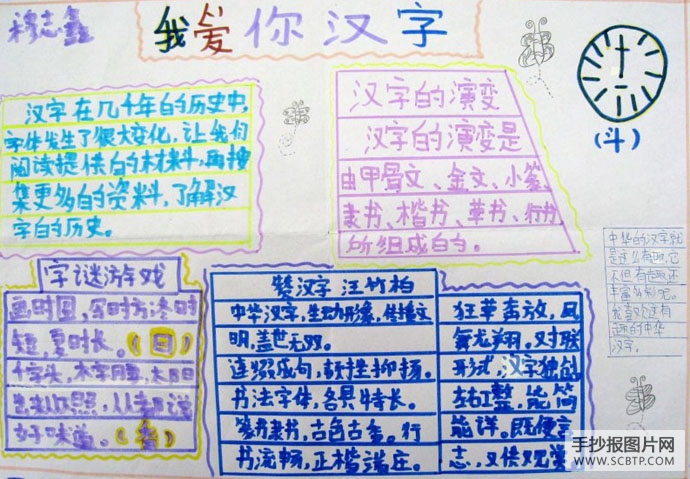 穆志鑫
我爱你汉字
(斗)
汉字在几千年的历史中,
字体发生了很大变化,让我们
阅读提供的材料,再搜
集更多的资料,了解汉
字的历史。
汉字的演变
汉字的演变是
由甲骨文、金文、小篆、
隶书、楷书、草书、行书
所组成的。
字谜游戏
画时圆,写时方,冬时
短,夏时长。(日)
十字头,木字腰,太阳
好味道。(香)
赞汉字 汪竹柏
中华汉字,生动形象,传播文
明,盖世无双。
连缀成句,顿挫抑扬。
书法字体,各具特长。
篆书隶书,古色古香。行
书流畅,正楷端庄。
狂草奔放,凤
舞龙翔。对联
形式,汉字独创
工整,能简
能详。既便言
志,又供观赏
中华的汉字就
是这么有趣,它
不但有趣还
丰富
我喜欢这有
趣的中华
汉字。
手抄报图片网
WWW.SCBTP.COM